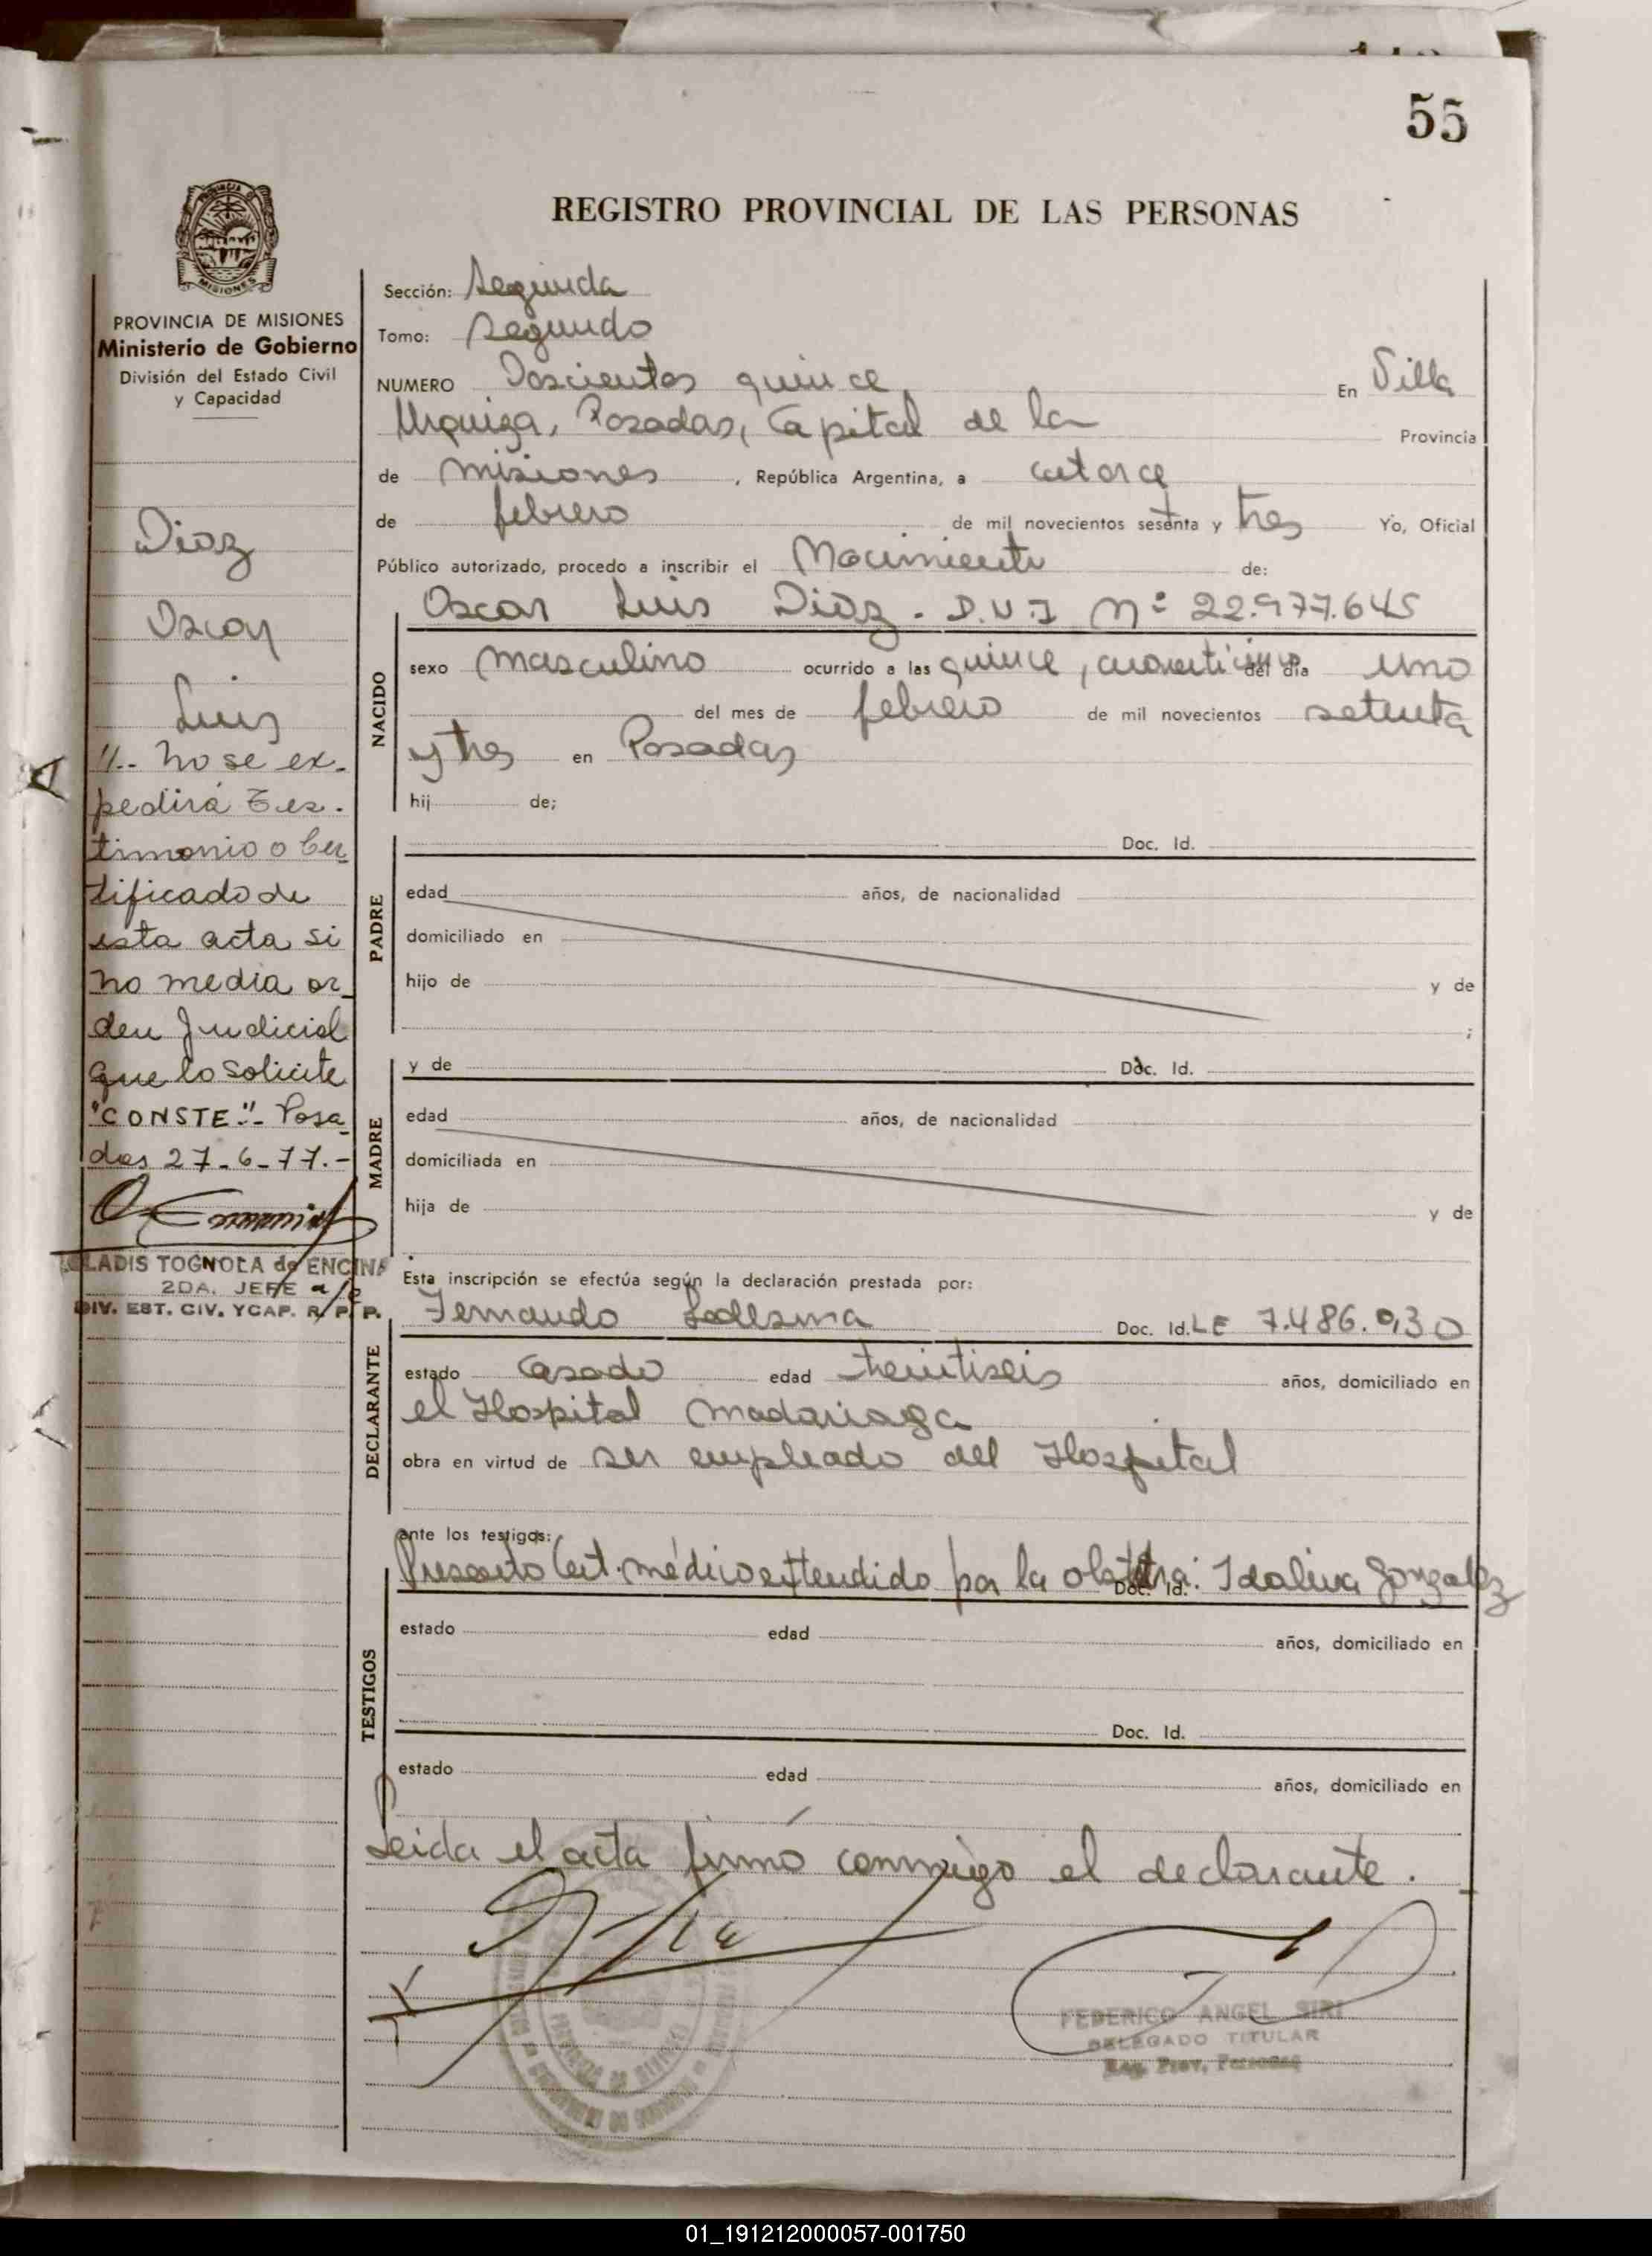 55
REGISTRO PROVINCIAL DE LAS PERSONAS
MISIONES
PROVINCIA DE MISIONES
Ministerio de Gobierno
División del Estado Civil
y Capacidad
Diaz
Oscar
Luis
"- No se ex-
pedirá Tes-
timonio o Cer
tificado de
esta acta si
no media or
den Judicial
que lo solicite
"CONSTE"- Posa
das 27-6-77.-
GLADIS TOGNOLA de ENCINA
2DA. JEFE a/c
DIV. EST. CIV. YCAP. R. P. P.
Sección: Segunda
Tomo: Segundo
NUMERO Doscientos quince En Villa
Urquiza, Posadas, Capital de la Provincia
de Misiones, República Argentina, a catorce
de febrero de mil novecientos sesenta y tres Yo, Oficial
Público autorizado, procedo a inscribir el Nacimiento de:
Oscar Luis Diaz. D.N.I Nº 22.977.645
NACIDO
sexo masculino ocurrido a las quince, del día uno
del mes de febrero de mil novecientos setenta
y tres en Posadas
hij de;
PADRE
Doc. Id.
edad años, de nacionalidad
domiciliado en
hijo de y de
;
MADRE
y de Doc. Id.
edad años, de nacionalidad
domiciliada en
hija de y de
Esta inscripción se efectúa según la declaración prestada por:
DECLARANTE
Fernando Ledesma Doc. Id. LE 7.486.030
estado Casado edad treintiseis años, domiciliado en
el Hospital Madariaga
obra en virtud de ser empleado del Hospital
ante los testigos:
TESTIGOS
Presento Cert. médico extendido por la obstetra: Idalina Gonzalez
Doc. Id.
estado edad años, domiciliado en
Doc. Id.
estado edad años, domiciliado en
Leida el acta firmó conmigo el declarante.
FEDERICO ANGEL SIRI
DELEGADO TITULAR
Reg. Prov. Personas
01_191212000057-001750